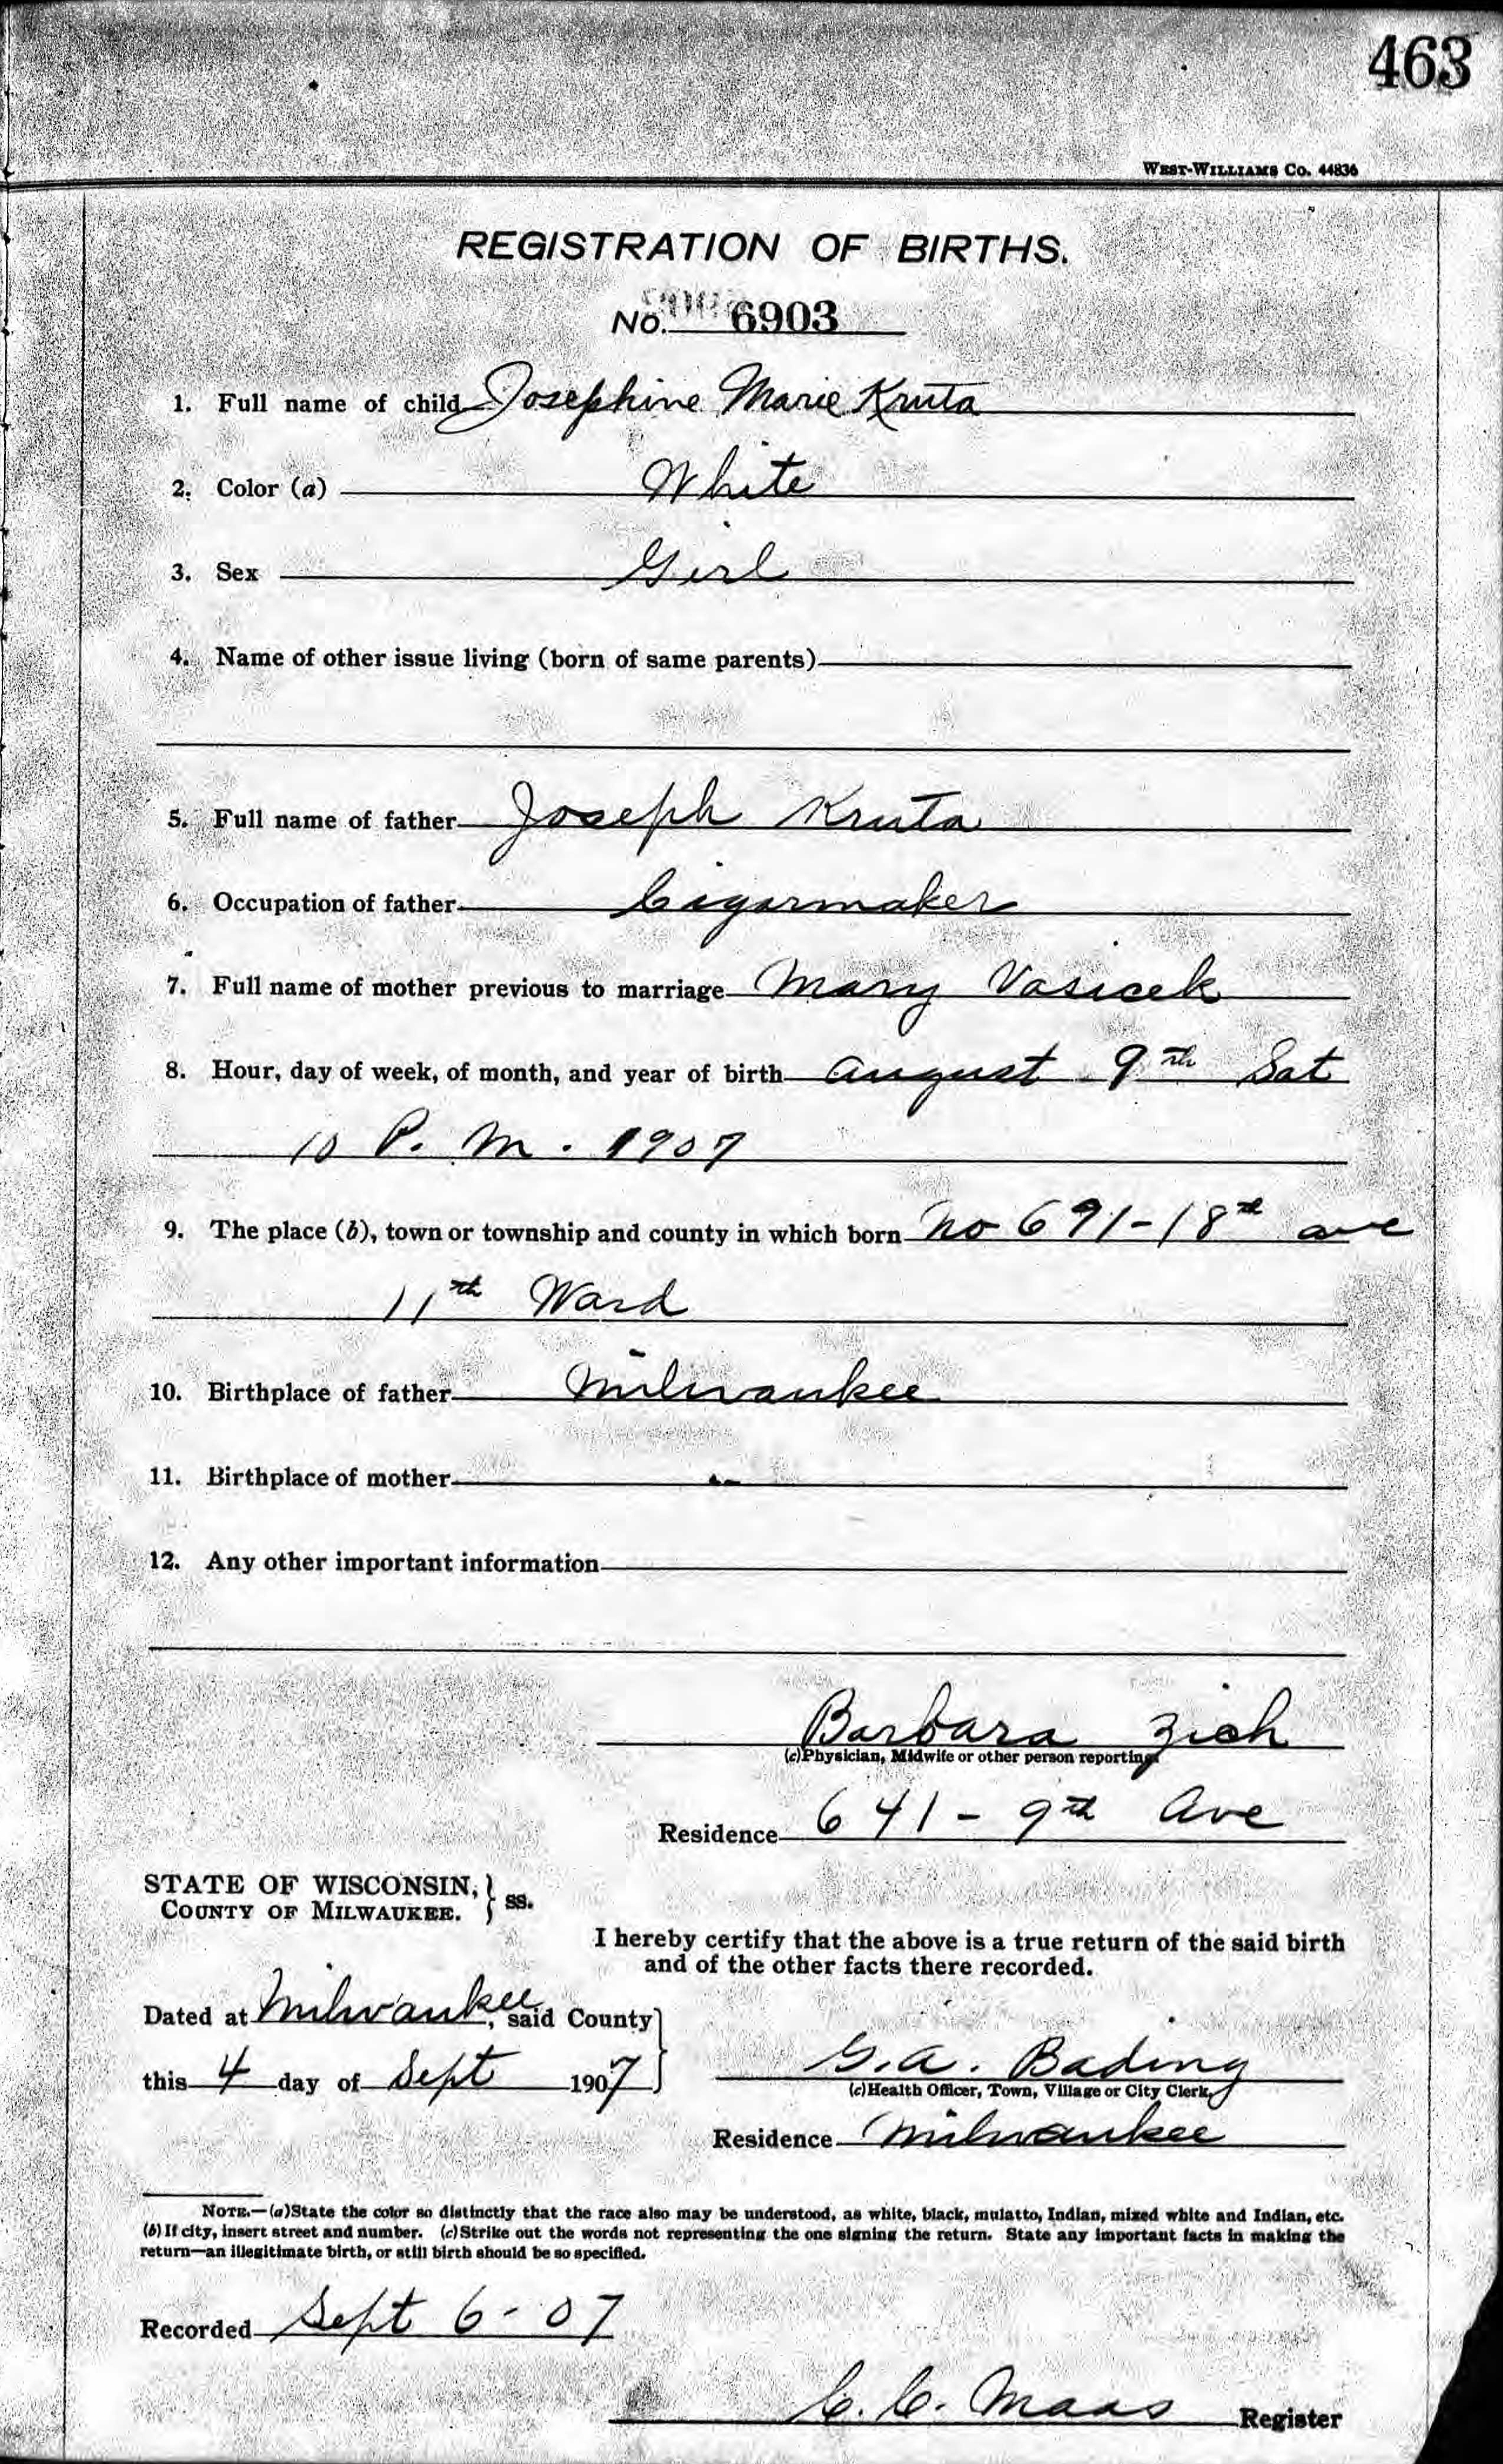 463
WEST-WILLIAMS CO. 44836
REGISTRATION OF BIRTHS.
No. 6903
1. Full name of child Josephine Marie Kruta
2. Color (a) White
3. Sex Girl
4. Name of other issue living (born of same parents)
5. Full name of father Joseph Kruta
6. Occupation of father Cigarmaker
7. Full name of mother previous to marriage Mary Vasicek
8. Hour, day of week, of month, and year of birth August 9th Sat
10 P. M. 1907
9. The place (b), town or township and county in which born No 691-18th ave
11th Ward
10. Birthplace of father Milwaukee
11. Birthplace of mother "
12. Any other important information
Barbara Zich
(c)Physician, Midwife or other person reporting
Residence 641-9th Ave
STATE OF WISCONSIN, } ss.
COUNTY OF MILWAUKEE.
I hereby certify that the above is a true return of the said birth
and of the other facts there recorded.
Dated at Milwaukee, said County
this 4 day of Sept 1907
G.A. Bading
(c)Health Officer, Town, Village or City Clerk,
Residence Milwaukee
NOTE.—(a)State the color so distinctly that the race also may be understood, as white, black, mulatto, Indian, mixed white and Indian, etc.
(b)If city, insert street and number. (c)Strike out the words not representing the one signing the return. State any important facts in making the
return—an illegitimate birth, or still birth should be so specified.
Recorded Sept 6-07
C. C. Maas Register